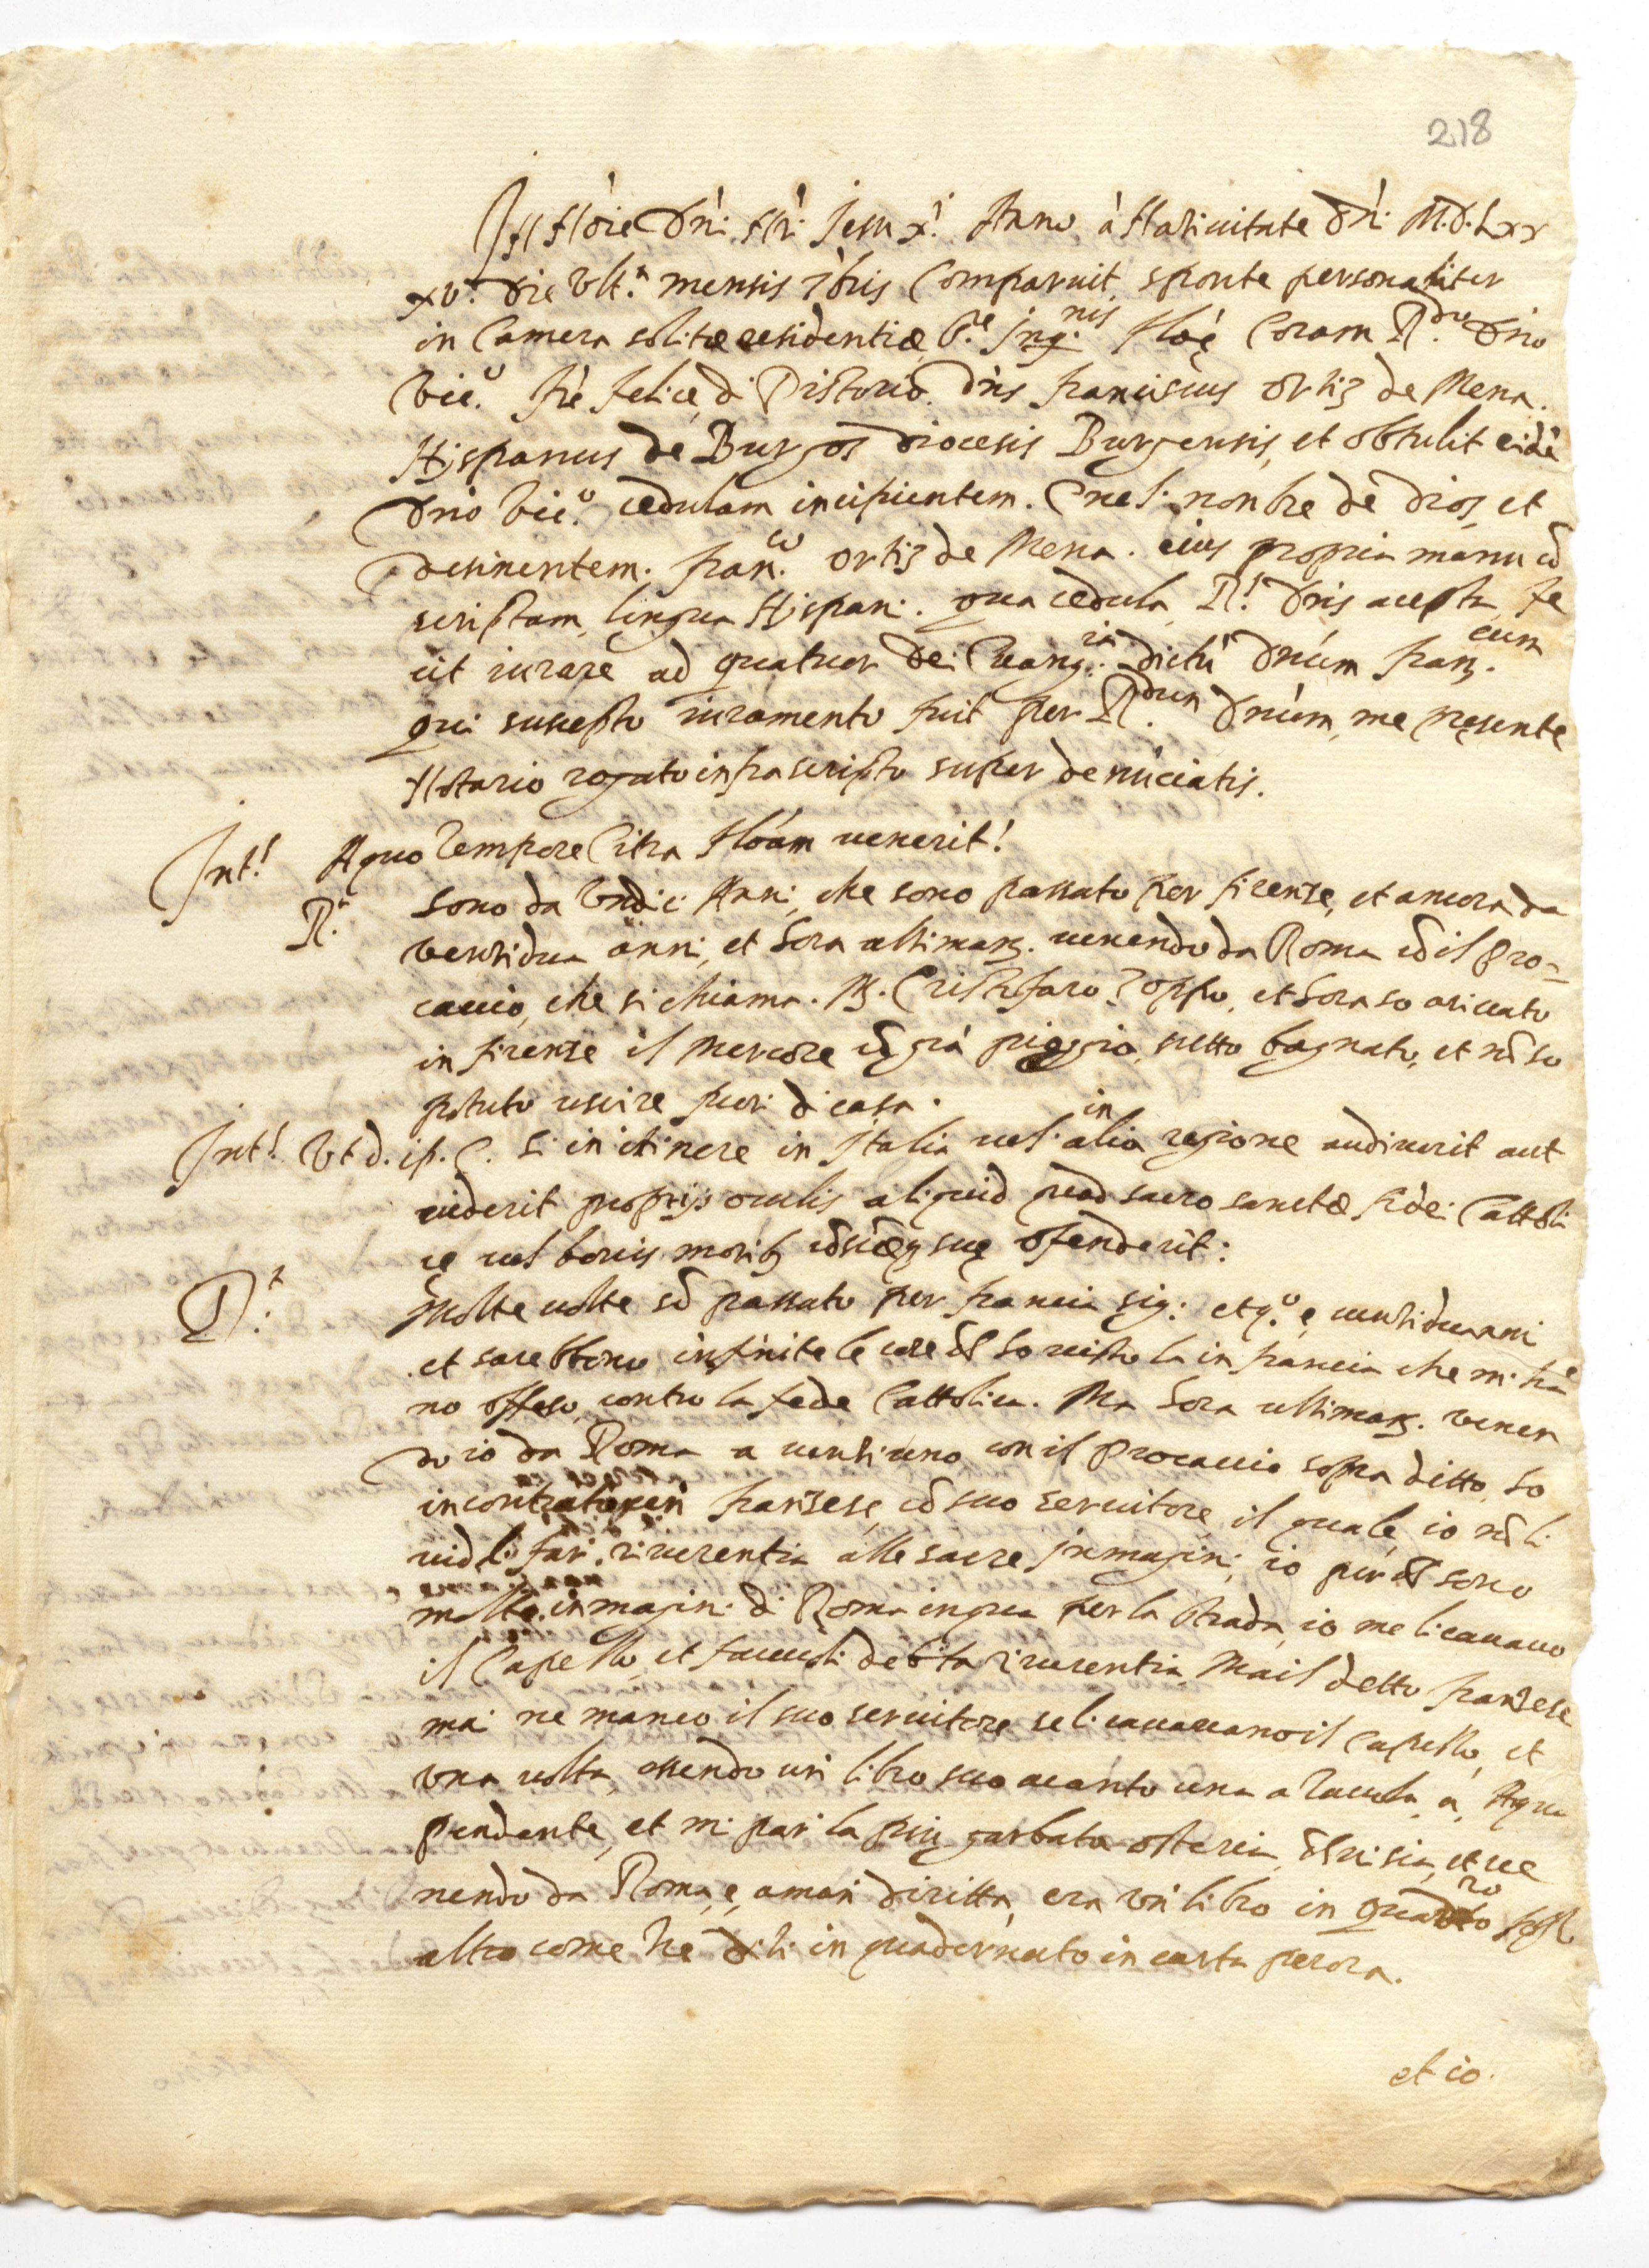 218
In Nõie Dñi Nr̃i Jesu Xi Anno à Natiuitate Dñi M.D.Lxx
xv. die vlt.a mensis 7bris Comparuit sponte personaliter
in Camera solitæ residentiæ S.te Inq.nis Flõe Coram R.do Dño
Vic.o frẽ felice di Pistorio Dñs franciscus Ortiz de Mena.
Hispanus de Burgos diocesis Burgensis, et obtulit eidẽ
Dño Vic.o cedulam incipientem. Enel nonbre de Dios, et
desinentem. fran.co Ortiz de Mena. eius propria manu
scriptam, lingua Hispan. qua cedula R. Dñs acepta fe
cit iurare ad quatuor Dei Euang.ia dictũ Dñum franc.cum
qui suscepto iuramento fuit per R.dum Dñum, me presente
Notario rogato infrascripto super denũciatis.
Int! A quo tempore Citra Flõam uenerit!
R. Sono da Vndici Anni, che sono passato per firenze, et ancora da
ventidua anni, et hora ultimam. uenendo da Roma cõ il pro=
caccio, che si chiama. M. Cristofaro Zoppo, et hora so ariuato
in firenze il Mercore cõ grã pioggia, tutto bagnato, et nõ so
potuto uscire fuori di casa.
Int! Vt d. ip. C. Si in itinere in Italia uel in alia regione audiuerit aut
uiderit proprijs oculis aliquid quod sacro sanctæ fidei Cattoli
ce uel bonis morib; cõsciẽq; sue ofenderit:
R. Molte uolte sõ passato per francia sig. et q.o e uentiduanni
et sarebbono infinite le cose ch ho uisto la in francia che mi hã
no offeso, contro la fede Cattolica. Ma hora ultimam. venen
do io da Roma a uentiuno con il procaccio sopra ditto, ho
incontrato un franzese, cõ suo seruitore, il quale, io nõ li
uiddi fari riuerentia alle sacre Inmagini, io pur ch sono
molte inmagini di Roma in qua per la strada, io me li cauauo
il Capello, et faceuoli debita riuerentia. Mail detto franzese
mai ne manco il suo seruitore seli cauauano il Capello, et
vna uolta, essendo un libro suo acanto una a tauola, à, Aqua
pendente, et mi par la piu garbata osteria, ch ui sia, et ue
nendo da Roma, e, aman diritta, era un libro in quadro
altro come he di li in quadernato in carta perora.
et io.